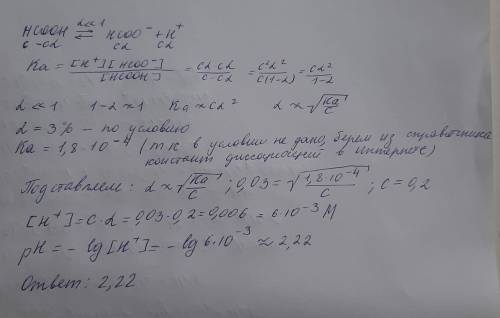 HCOOH ⇄ HCOO⁻ + H⁺
α ≪ 1
c-cα cα cα
Ka = [H⁺][HCOO⁻] / [HCOOH] = cα·cα / c-cα = c²α² / c(1-α) = cα² / 1-α
α ≪ 1 1-α ≈ 1 Ka ≈ cα² α ≈ √(Ka/c)
α = 3% - по условию
Ka = 1,8·10⁻⁴ (т к в условии не дано, берем из справочника
констант диссоциации в интернете)
Подставляем: α ≈ √(Ka/c) ; 0,03 = √(1,8·10⁻⁴/c) ; c = 0,2
[H⁺] = c·α = 0,03·0,2 = 0,006 = 6·10⁻³ M
pH = - lg [H⁺] = - lg 6·10⁻³ ≈ 2,22
Ответ: 2,22